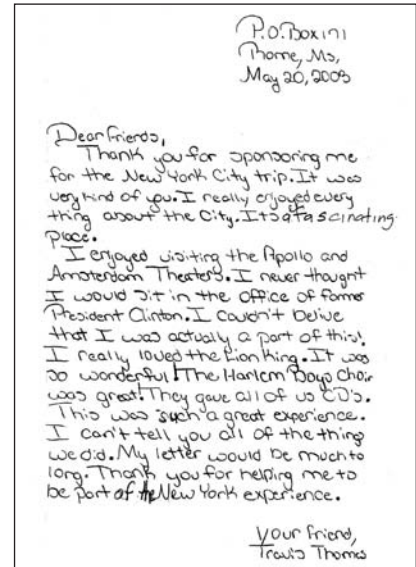 P.O. Box 171
Thorne, Ms,
May 20, 2003
Dear Friends,
Thank you for sponsoring me
for the New York City trip. It was
very kind of you. I really enjoyed every
thing about the City. Its a fascinating
place.
I enjoyed visiting the Apollo and
Amsterdam Theaters. I never thought
I would sit in the office of former
President Clinton. I couldn't belive
that I was actually a part of this!
I really loved the Lion King. It was
so wonderful! The Harlem Boys Choir
was great! They gave all of us CD's.
This was such a great experience.
I can't tell you all of the thing
we did. My letter would be much to
long. Thank you for helping me to
be part of the New York experience.
Your Friend,
Travis Thomas